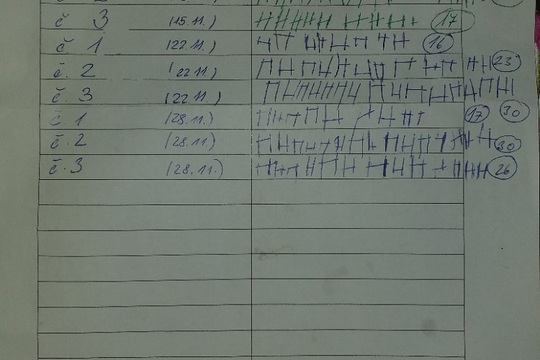 č 3 (15.11.) 17
č 1 (22.11.) 16
č. 2 (22.11.) 23
č 3 (22.11.) 30
č 1 (28.11.) 17
č. 2 (28.11) 30
č. 3 (28.11.) 26